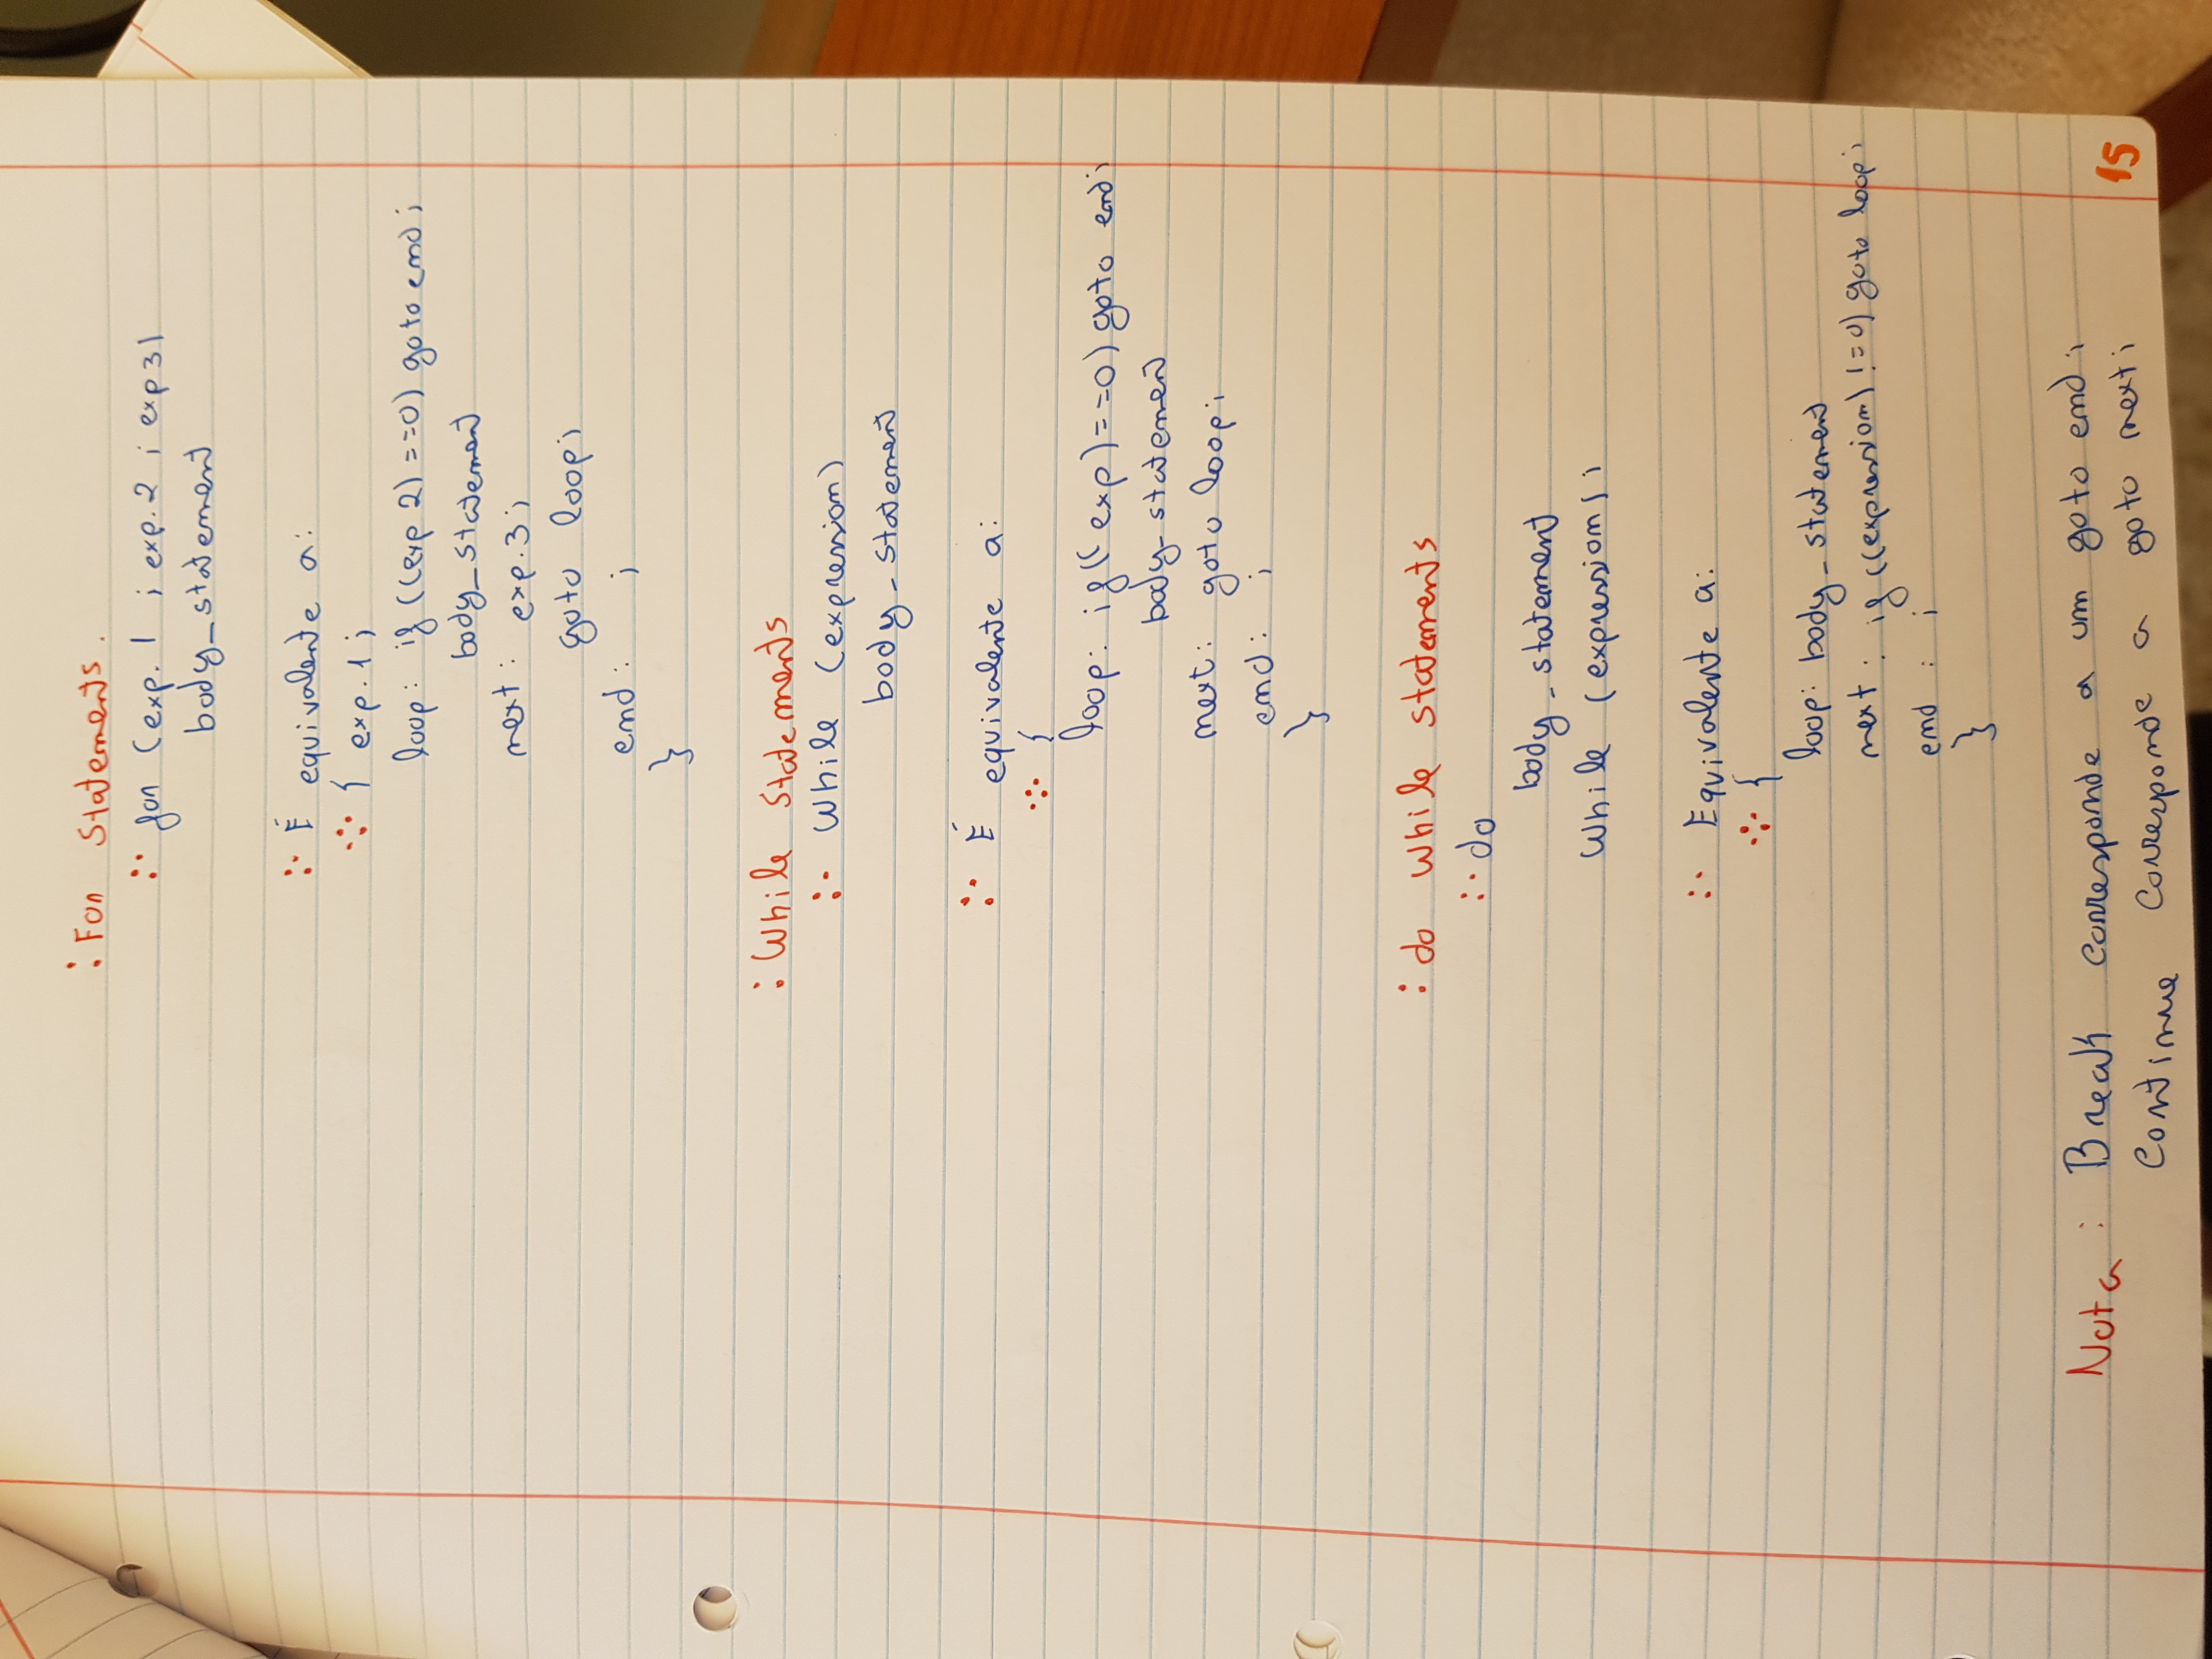 : For Statements.
for (exp.1 ; exp.2 ; exp3)
body_statement
É equivalente a:
{ exp.1;
loop: if ((exp 2) ==0) goto end;
body_statement
next: exp.3;
goto loop;
end: ;
}
: While statements
While (expression)
body_statement
É equivalente a:
{
loop: if(( exp)==0) goto end;
body_statemen
next: goto loop;
end: ;
}
: do while statements
do
body_statement
While (expression);
Equivalente a:
{
loop: body_statement
next: if ((expression) !=0) goto loop;
end : ;
}
Nota: Break corresponde a um goto end;
Continue corresponde a goto next;
15